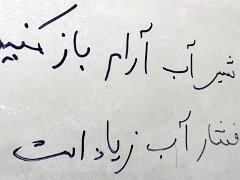 شیر آب آرام باز کنید
فشار آب زیاد است